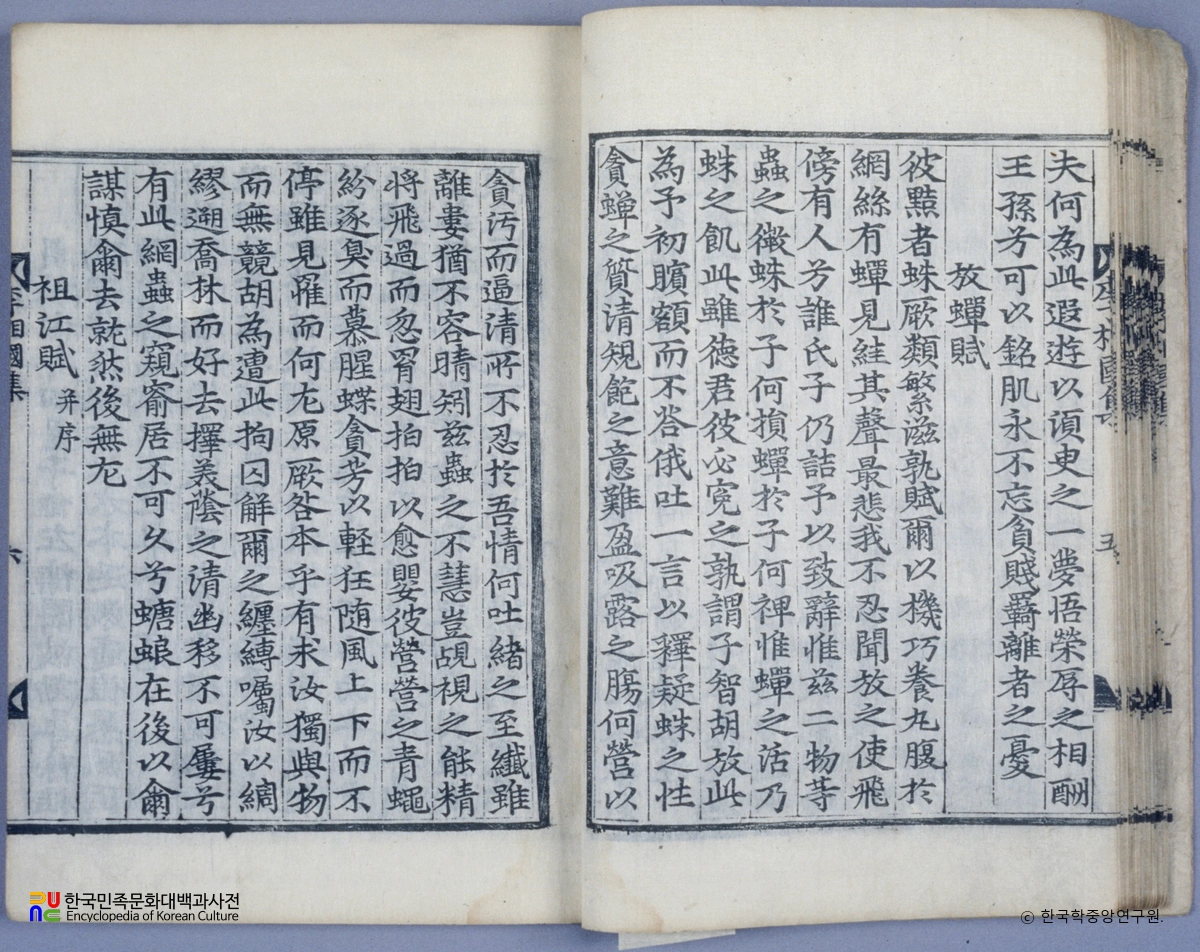 夫何為此遐遊以須臾之一夢悟榮辱之相酬
王孫兮可以銘肌永不忘貧賤羇離者之憂
放蟬賦
彼黠者蛛厥類繁滋孰賦爾以機巧養丸腹於
網絲有蟬見絓其聲最悲我不忍聞放之使飛
傍有人兮誰氏子仍詰予以致辭惟兹二物等
蟲之微蛛於子何損蟬於子何裨惟蟬之活乃
蛛之飢此雖德君彼必寃之孰謂子智胡放此
為予初矉額而不答俄吐一言以釋疑蛛之性
貪蟬之質清規飽之意難盈吸露之膓何營以
貪汚而逼清所不忍於吾情何吐緒之至纖雖
離婁猶不容晴矧兹蟲之不慧豈覘視之能精
將飛過而忽罥翅拍拍以愈嬰彼營營之青蠅
紛逐臭而慕腥蝶貪芳以軽狂随風上下而不
停雖見罹而何尤原厥咎本乎有求汝獨與物
而無競胡為遭此拘囚解爾之纏縛囑汝以綢
繆遡喬林而好去擇羙蔭之清幽移不可屢兮
有此網蟲之窺窬居不可久兮螗蜋在後以爾
謀慎爾去就然後無尤
祖江賦 并序
李相國集
五
六
한국민족문화대백과사전
Encyclopedia of Korean Culture
© 한국학중앙연구원.